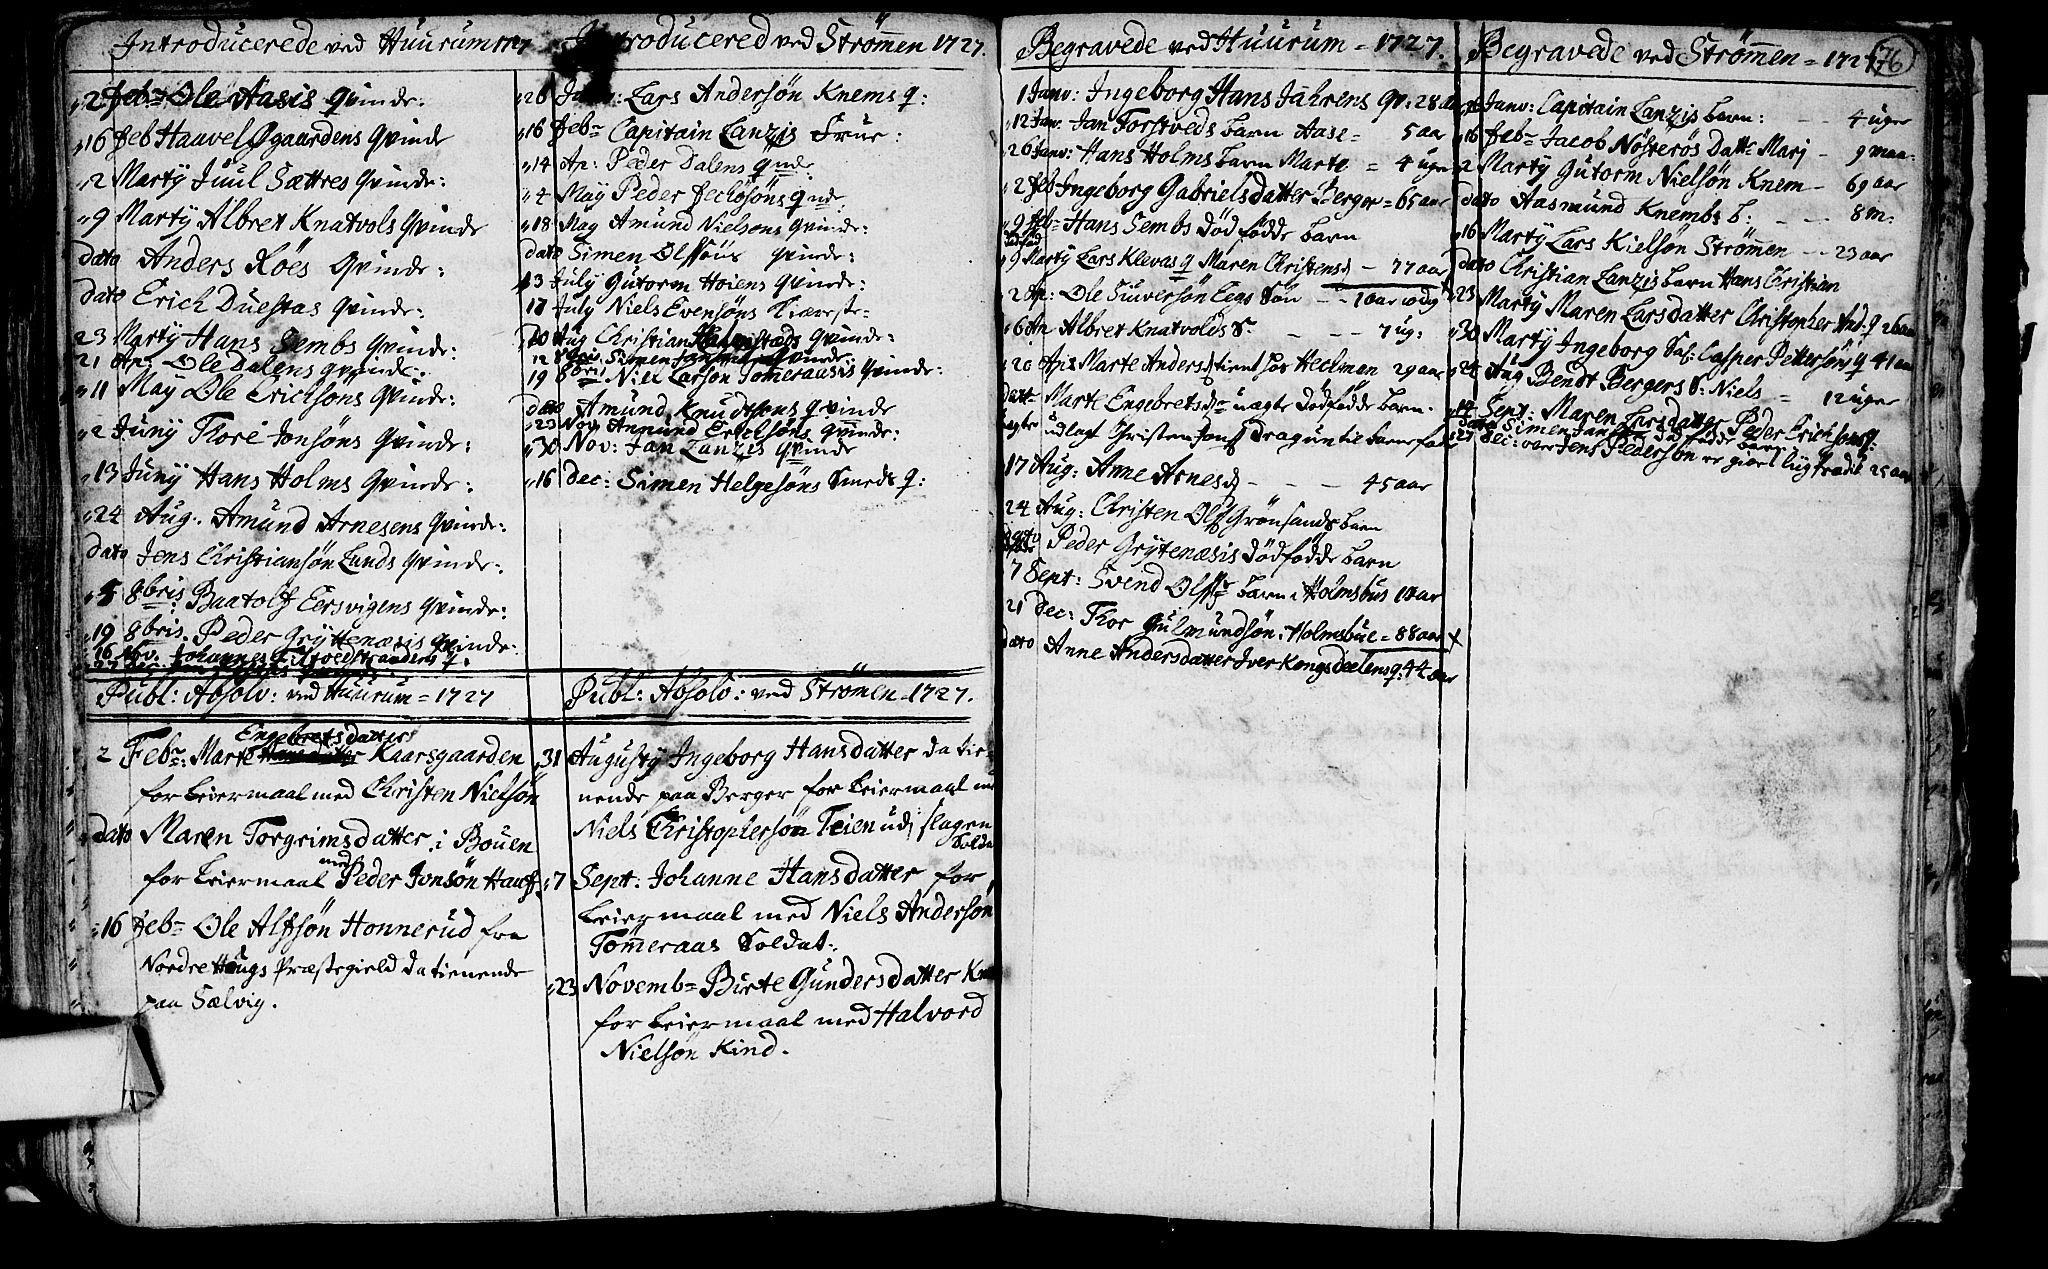 Introducerede ved Huurum 1727
2 feb: Ole Aasis qvinde:
16 feb Haavel Øgaardens qvinde
2 Martij Juul Sættres qvinde:
9 Martij Albret Knatvols qvinde
dato Anders Röes qvinde:
dato Erich Duestas qvinde:
23 Martij Hans Sembs qvinde:
21 Ap: Ole Dalens qvinde:
11 May Ole Ericksöns qvinde:
2 Junij Thore Jonsöns qvinde:
13 Junij Hans Holms qvinde:
24 Aug: Amund Arnesens qvinde:
dato Jens Christiansön Lunds qvinde:
5 8bris Baatolf Eersvigens qvinde:
19 8bris Peder Gryttenæsis qvinde:
16 Nov. Johannes
Introducered ved Strömen 1727.
26 Janv: Lars Andersön Knems q:
16 feb Capitain Lanzis Frue:
14 Ap: Peder Dalens q
4 May Peder
18 May Amund Nielsöns qvinde:
dato Simen Olssöns qvinde:
13 July Gutorm Høiens qvinde:
17 July Niels Evensöns Kiæreste
20 Aug Christian qvinde:
12 8bris Simen qvinde:
19 8bris Niels Larsön Tömeraasis qvinde:
dato Amund Knudtsöns qvinde
23 Nov Amund Ericksöns qvinde:
30 Nov: Jan Lanzis qvinde
16 Dec: Simen Helgesöns Smeds q:
Publ: Absolv: ved Huurum = 1727
2 Feb: Marte Engebretsdatter Kaarsgaarden
for Leiermaal med Christen Nielsön
dato Maren Torgrimsdatter i Bouen
for Leiermaal med Peder Jonsön
16 feb Ole Alfsön Honnerud fra
Nordre Haugs Præstegield da tienende
paa Sælvig.
Publ: Absolv: ved Strömen = 1727.
31 Augusty Ingeborg Hansdatter da tie-
nende paa Berger for Leiermaal med
Niels Christophersön Teien udj Slagen
Solda
7 Sept: Johanne Hansdatter for
Leiermaal med Niels Andersön
Tömeraas Soldat:
23 Novemb Birte Gundersdatter
for Leiermaal med Halvord
Nielsön Kind.
Begravede ved Huurum = 1727.
1 Janv: Ingeborg Hans Jahrens qv: 28 aar
12 Jan: Jan Torstveds barn Aase = 5 aar
26 Janv: Hans Holms barn Marte = 4 uger
2 feb Ingeborg Gabrielsdatter Berger = 65 aar
9 feb Hans Sembs Död födde barn
9 Martij Lars Klevas q Maren Christensd - 77 aar
2 Ap: Ole Siuversön Eegs Sön - 1 aar 10 dg
6 Ap Albret Knatvolds S. - - - 7 ug:
20 Apr Marte Andersd tient hos Heckman 29 aar
dato Marte Engebretsd uægte Dödfödde barn.
udlagt Christen Dragun til barnefader
17 Aug: Anne Arnesd - - - 45 aar
24 Aug: Christen Ols Grönsands barn
dato Peder Grytenæsis dödfödde barn
7 Sept: Svend Olss barn i Holmsbus 10 aar
21 Dec: Thor Gulmundsön i Holmsbue = 88 aar
dato Anne Andersdatter Iver Kongsdeelens q: 44 aar
Begravede ved Strömen = 172
76
Janv: Capitain Lanzis barn: - 4 uger
16 feb Jacob Nösterös Datt Marj - 9 maa:
2 Martij Gutorm Nielsön Knem - 69 aar
dato Aasmund Knembs b: - - 8 m:
16 Martij Lars Kielsön Strömmen - - 23 aar
dato Christian Lanzis barn Hans Christian
23 Martij Maren Larsdatter Christopher And: q 26 aar
30 Martij Ingeborg Sal: Casper Pettersöns q 41 aar
24 Aug Bendt Bergers S: Niels = 12 uger
14 Sept: Maren Larsdatter Peder Erichsöns q:
dato Simen dödfödde barn
27 Dec: over Jens Pedersön er giort liigprædik 25 aar